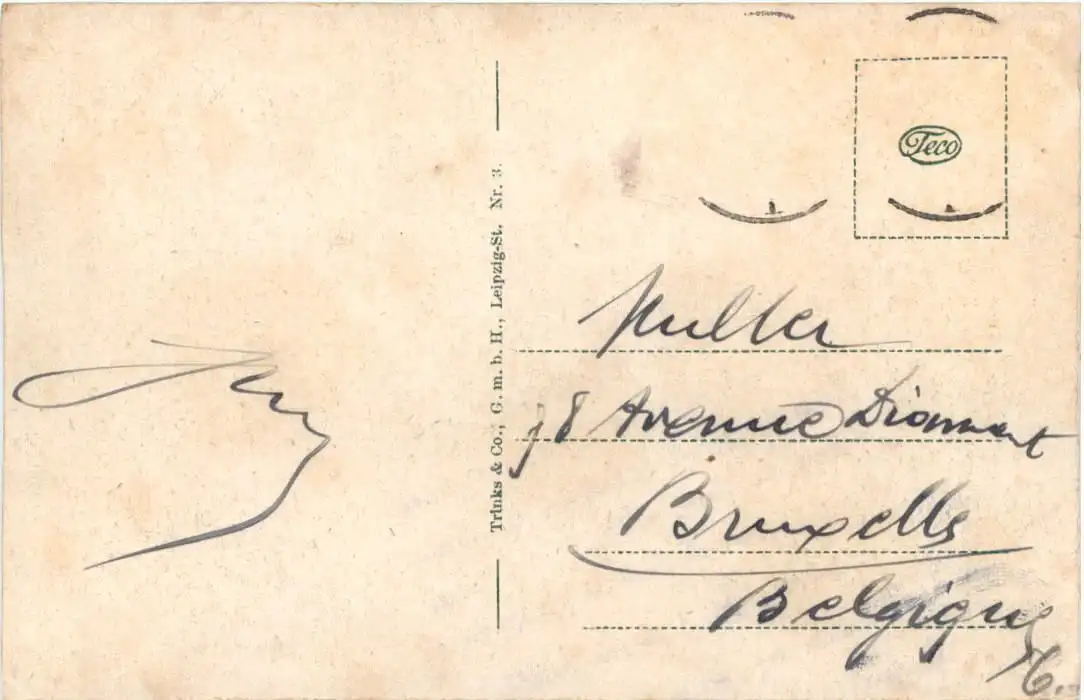 Trinks & Co., G. m. b. H., Leipzig-St. Nr. 3.
Teco
Muller
78 Avenue Diamant
Bruxelles
Belgique